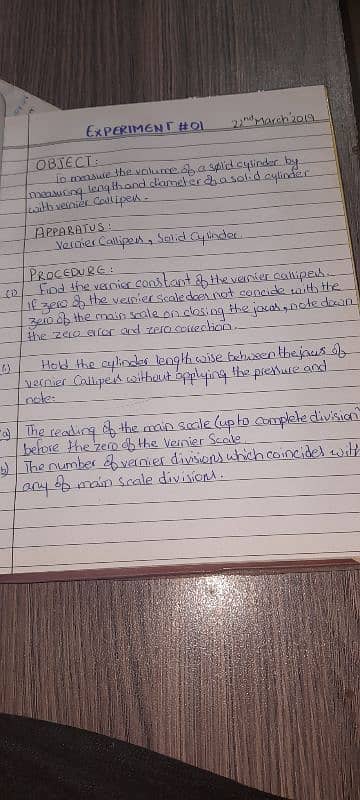 EXPERIMENT #01 22nd March'2019
OBJECT:
To measure the volume of a solid cylinder by
measuring length and diameter of a solid cylinder
with vernier Callipers.
APPARATUS:
Vernier Callipers, Solid Cylinder
PROCEDURE:
(i) Find the vernier constant of the vernier callipers.
If zero of the vernier scale does not concide with the
zero of the main scale on closing the jaws, note down
the zero error and zero correction.
Hold the cylinder length wise between the jaws of
vernier Callipers without applying the pressure and
note:
a) The reading of the main scale (upto complete division)
before the zero of the Vernier Scale
b) The number of vernier divisions which coincides with
any of main scale divisions.